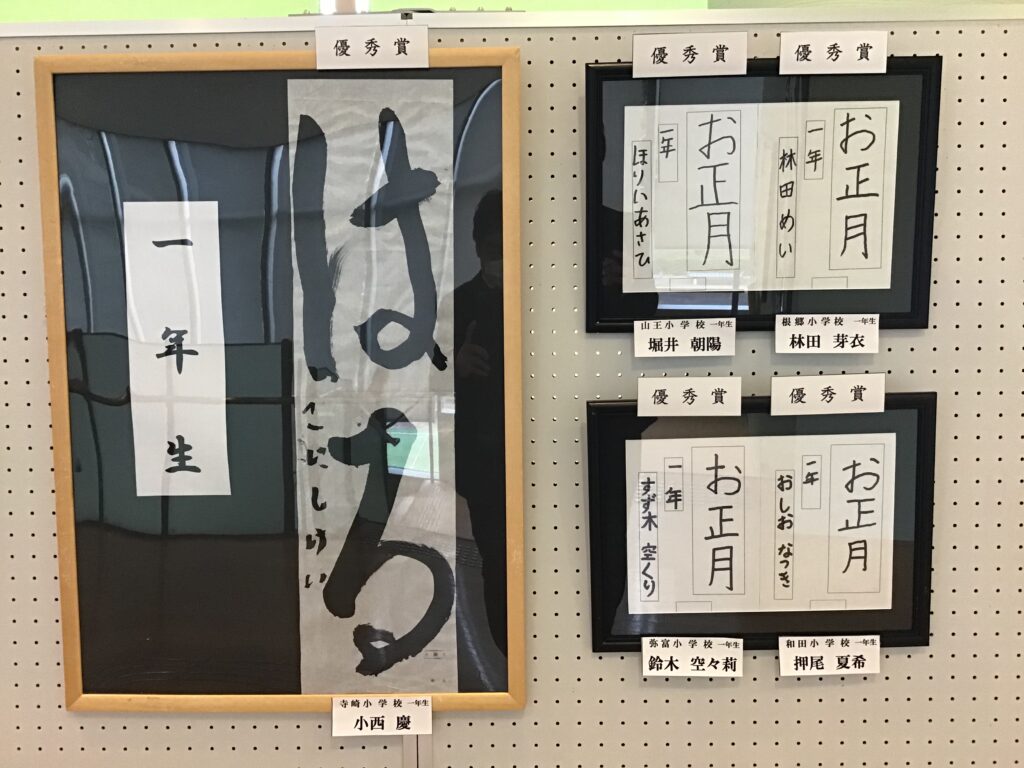 優秀賞
はる
こにしけい
一年生
寺崎小学校 一年生
小西 慶
優秀賞
優秀賞
お正月
一年
林田めい
お正月
一年
ほりいあさひ
根郷小学校 一年生
林田 芽衣
山王小学校 一年生
堀井 朝陽
優秀賞
優秀賞
お正月
一年
おしお なつき
お正月
一年
すず木 空くり
和田小学校 一年生
押尾 夏希
弥富小学校 一年生
鈴木 空々莉